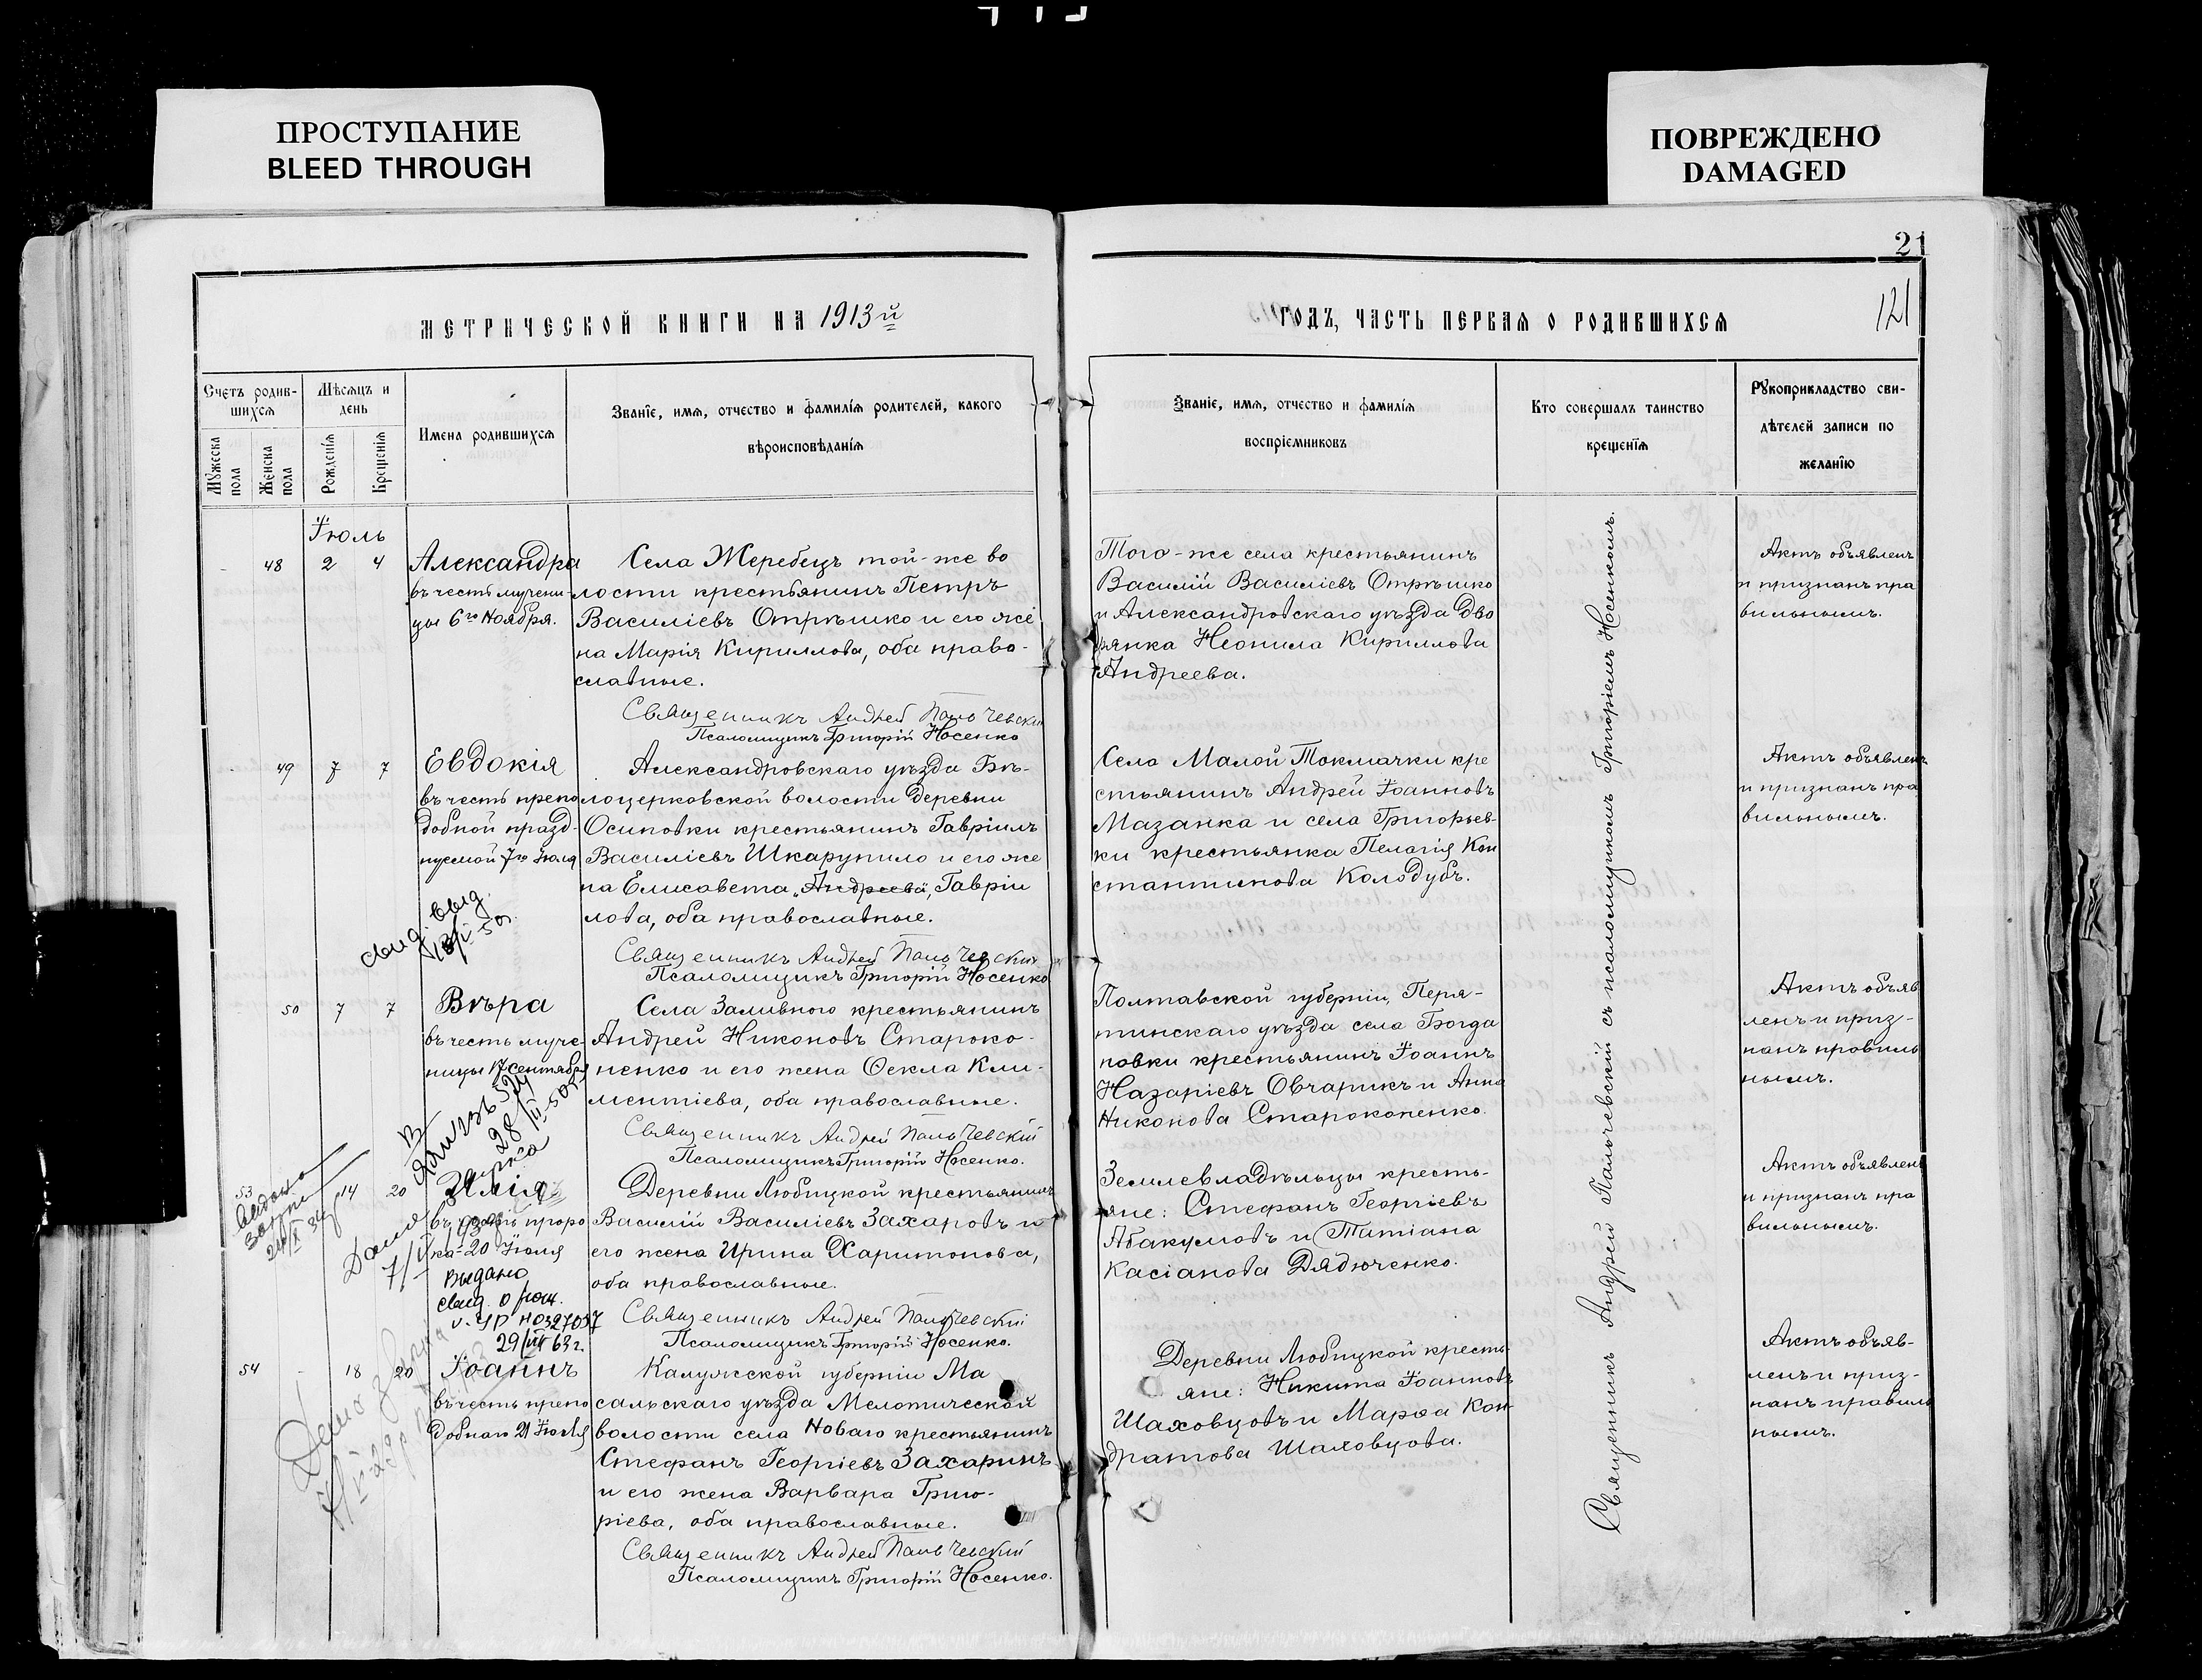 ПРОСТУПАНИЕ
BLEED THROUGH
ПОВРЕЖДЕНО
DAMAGED
21
121
МЕТРИЧЕСКОЙ КНИГИ НА 1913й
ГОДЪ, ЧАСТЬ ПЕРВАЯ О РОДИВШИХСЯ
Счетъ родив-
шихся
Мѣсяцъ и
день
Мужеска
пола
Женска
пола
Рожденія
Крещенія
Имена родившихся
Званіе, имя, отчество и фамилія родителей, какого
вѣроисповѣданія
Званіе, имя, отчество и фамилія
воспріемниковъ
Кто совершалъ таинство
крещенія
Рукоприкладство сви-
дѣтелей записи по
желанію
Іюль
48 2 4
Александра
въ честь мучени-
цы 6го Ноября.
Села Жеребецъ той-же во
лости крестьянинъ Петръ
Василіевъ Отрѣшко и его же
на Марія Кириллова, оба право-
славные.
Священникъ Андрей Пальчевскій
Псаломщикъ Григорій Носенко
Того-же села крестьянинъ
Василій Василіевъ Отрѣшко
и Александровскаго уѣзда дво
рянка Неонила Кириллова
Андреева.
Актъ объявленъ
и признанъ пра
вильнымъ.
49 7 7
Евдокія
въ честь препо
добной празд-
нуемой 7го Іюля
Александровскаго уѣзда Бѣ-
лоцерковской волости деревни
Осиповки крестьянинъ Гавріилъ
Василіевъ Шкарупило и его же
на Елисавета „Андреева„ Гавріи
лова, оба православные.
Священникъ Андрей Пальчевскій
Псаломщикъ Григорій Носенко
Села Малой Токмачки кре
стьянинъ Андрей Іоанновъ
Мазанка и села Григорьев-
ки крестьянка Пелагія Кон
стантинова Колодубъ.
Актъ объявленъ
и признанъ пра
вильнымъ.
50 7 7
Вѣра
въ честь муче-
ницы 17 сентября
Села Заливного крестьянинъ
Андрей Никоновъ Староко-
ненко и его жена Ѳекла Кли-
ментіева, оба православные.
Священникъ Андрей Пальчевскій
Псаломщикъ Григорій Носенко.
Полтавской губерніи, Перя-
тинскаго уѣзда села Богда
новки крестьянинъ Іоаннъ
Назаріевъ Овчарикъ и Анна
Никонова Староконенко.
Актъ объяв
ленъ и приз-
нанъ правиль
нымъ.
53 14 20
Илія
въ честь проро
ка 20 Іюля
Выдано
свид. о рож.
29/VIII 63 г.
Деревни Любицкой крестьянинъ
Василій Василіевъ Захаровъ и
его жена Ирина Харитонова,
оба православные.
Священникъ Андрей Пальчевскій
Псаломщикъ Григорій Носенко.
Землевладѣльцы кресть-
яне: Стефанъ Георгіевъ
Абакумовъ и Татіана
Касіанова Дядюченко.
Актъ объявленъ
и признанъ пра
вильнымъ.
54 - 18 20
Іоаннъ
въ честь препо
добнаго 21 Іюля
Калужской губерніи Ма
сальскаго уѣзда Мелотической
волости села Новаго крестьянинъ
Стефанъ Георгіевъ Захаринъ
и его жена Варвара Григо-
ріева, оба православные.
Священникъ Андрей Пальчевскій
Псаломщикъ Григорій Носенко.
Деревни Любицкой кресть-
яне: Никита Іоанновъ
Шаховцовъ и Марѳа Кон-
дратова Шаховцова.
Актъ объяв-
ленъ и приз-
нанъ правиль
нымъ.
Священникъ Андрей Пальчевскій съ псаломщикомъ Григоріемъ Носенкомъ.